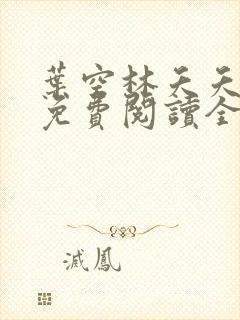 葉空林天天
免費閱讀全
滅鳳